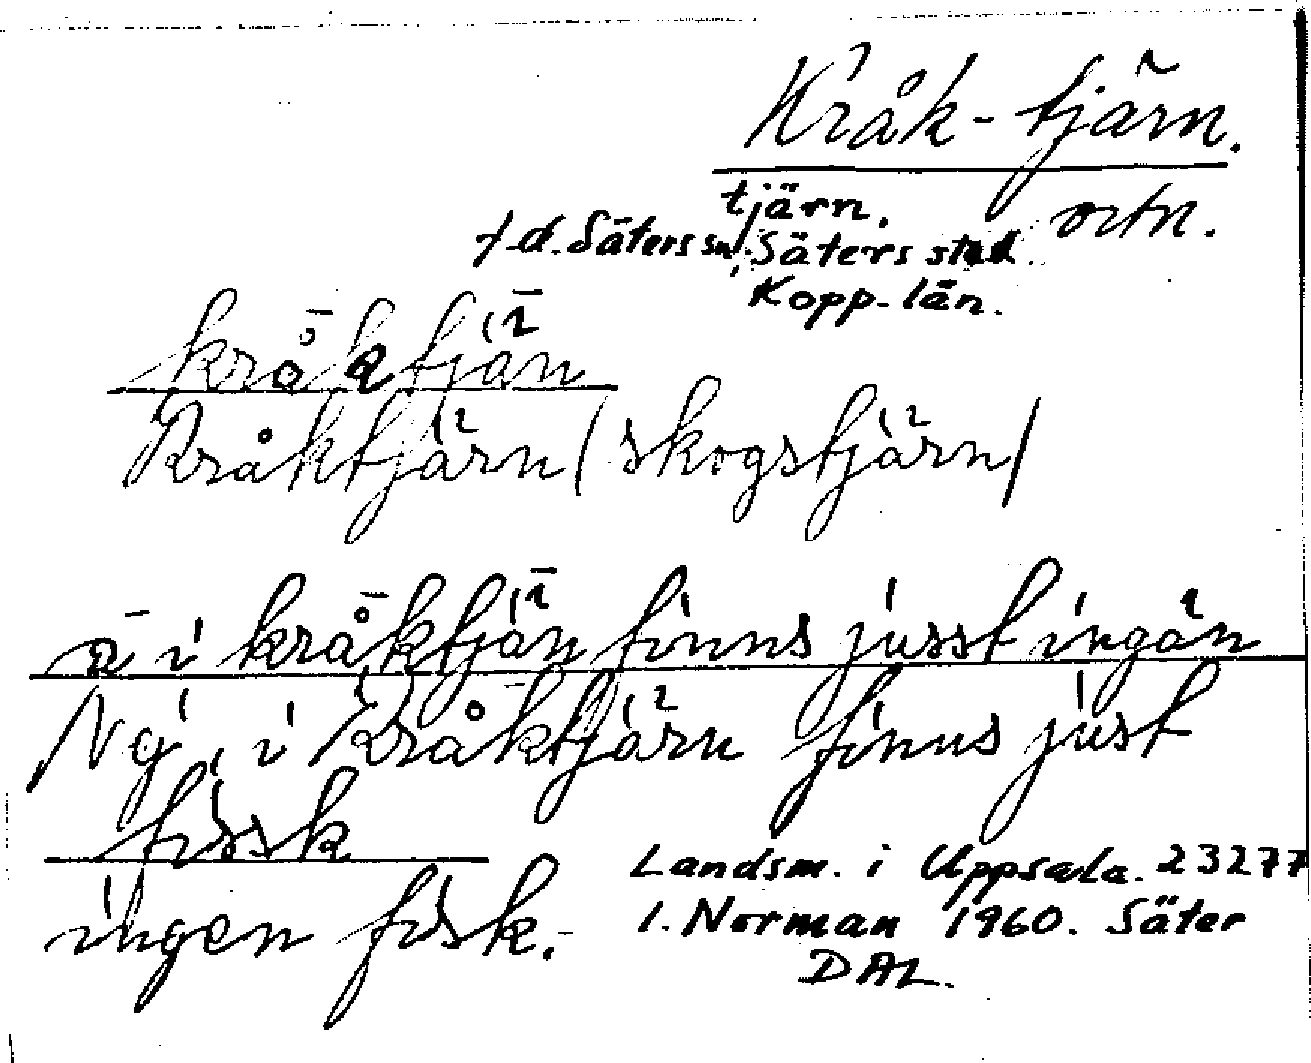 Kråk-tjärn.
tjärn. ortn.
f.d. Säters sn, Säters stad.
Kopp. län.
kråktjän
Kråktjärn (skogstjärn)
i kråktjän finns jusst ingän
Nej, i Kråktjärn finns just
fissk
ingen fisk.
Landsm. i Uppsala. 23277
I. Norman 1960. Säter
DAL.